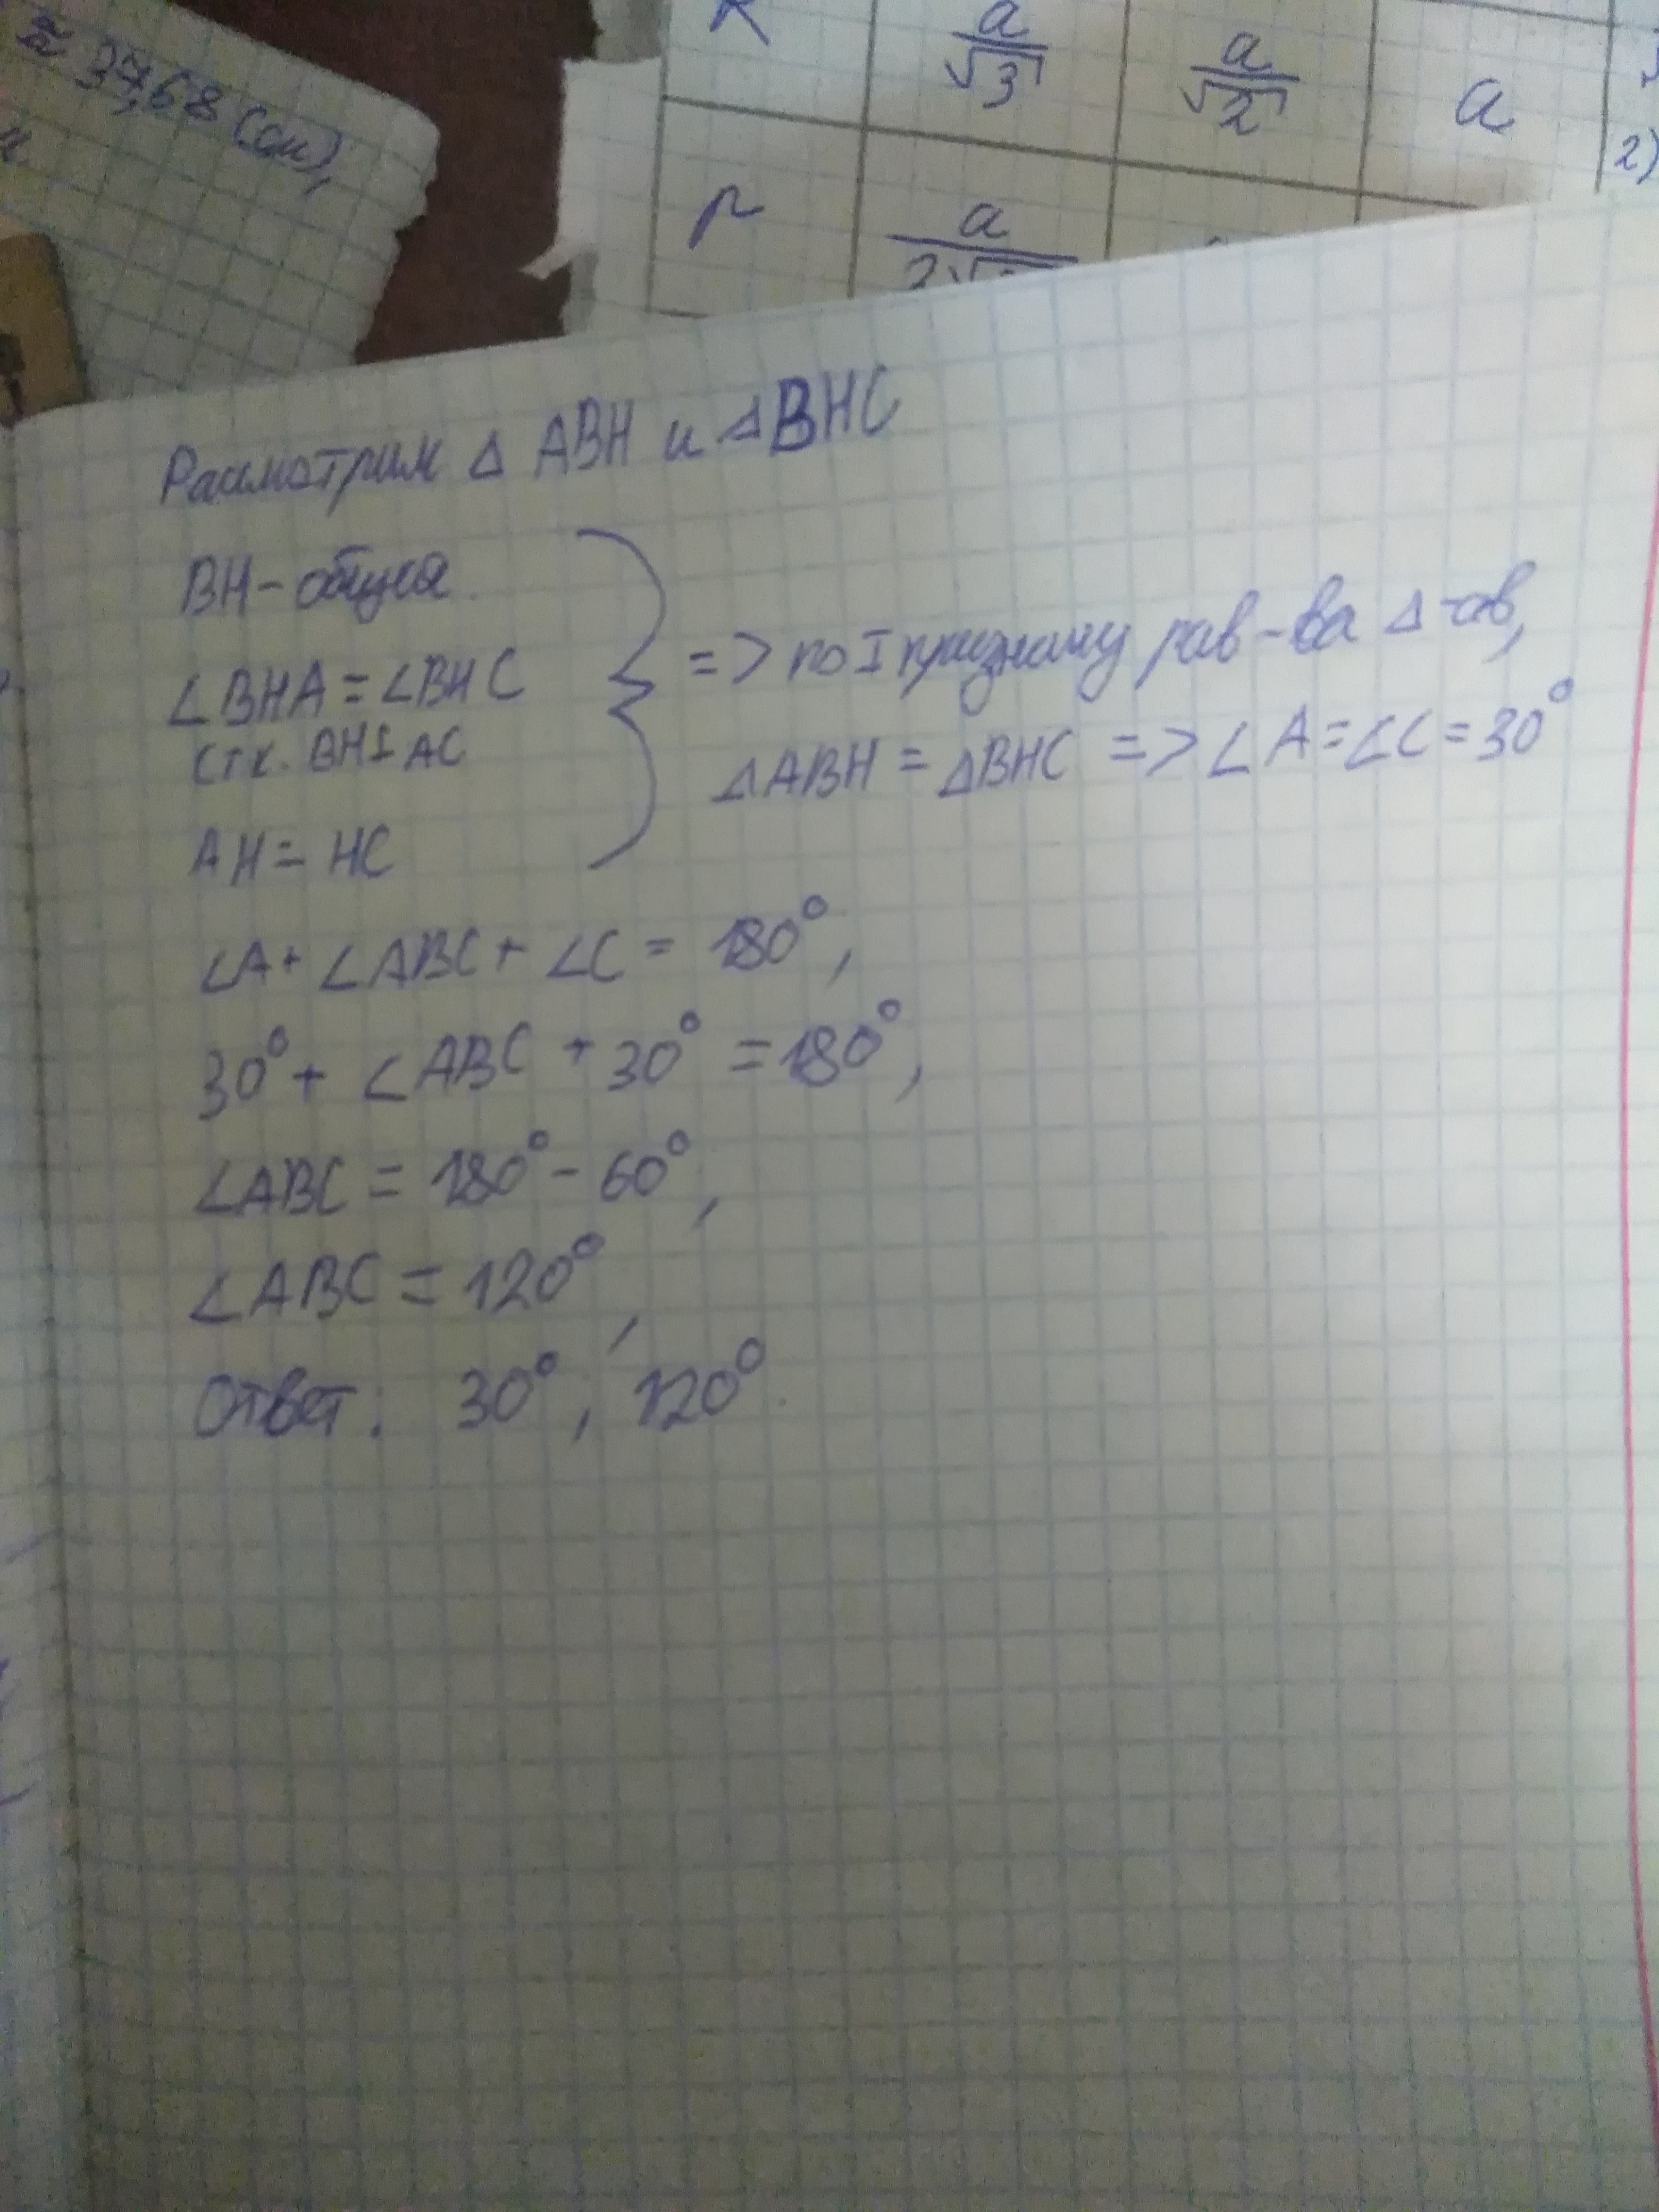 ≈ 37,68 (см),
R a/√3 a/√2 a
2)
r a/2√
Рассмотрим Δ ABH и ΔBHC
BH - общая
∠BHA = ∠BHC
(т.к. BH⊥AC
AH = HC
=> по I признаку рав-ва Δ-ов,
ΔABH = ΔBHC => ∠A = ∠C = 30°
∠A + ∠ABC + ∠C = 180°,
30° + ∠ABC + 30° = 180°,
∠ABC = 180° - 60°,
∠ABC = 120°,
Ответ: 30°, 120°.